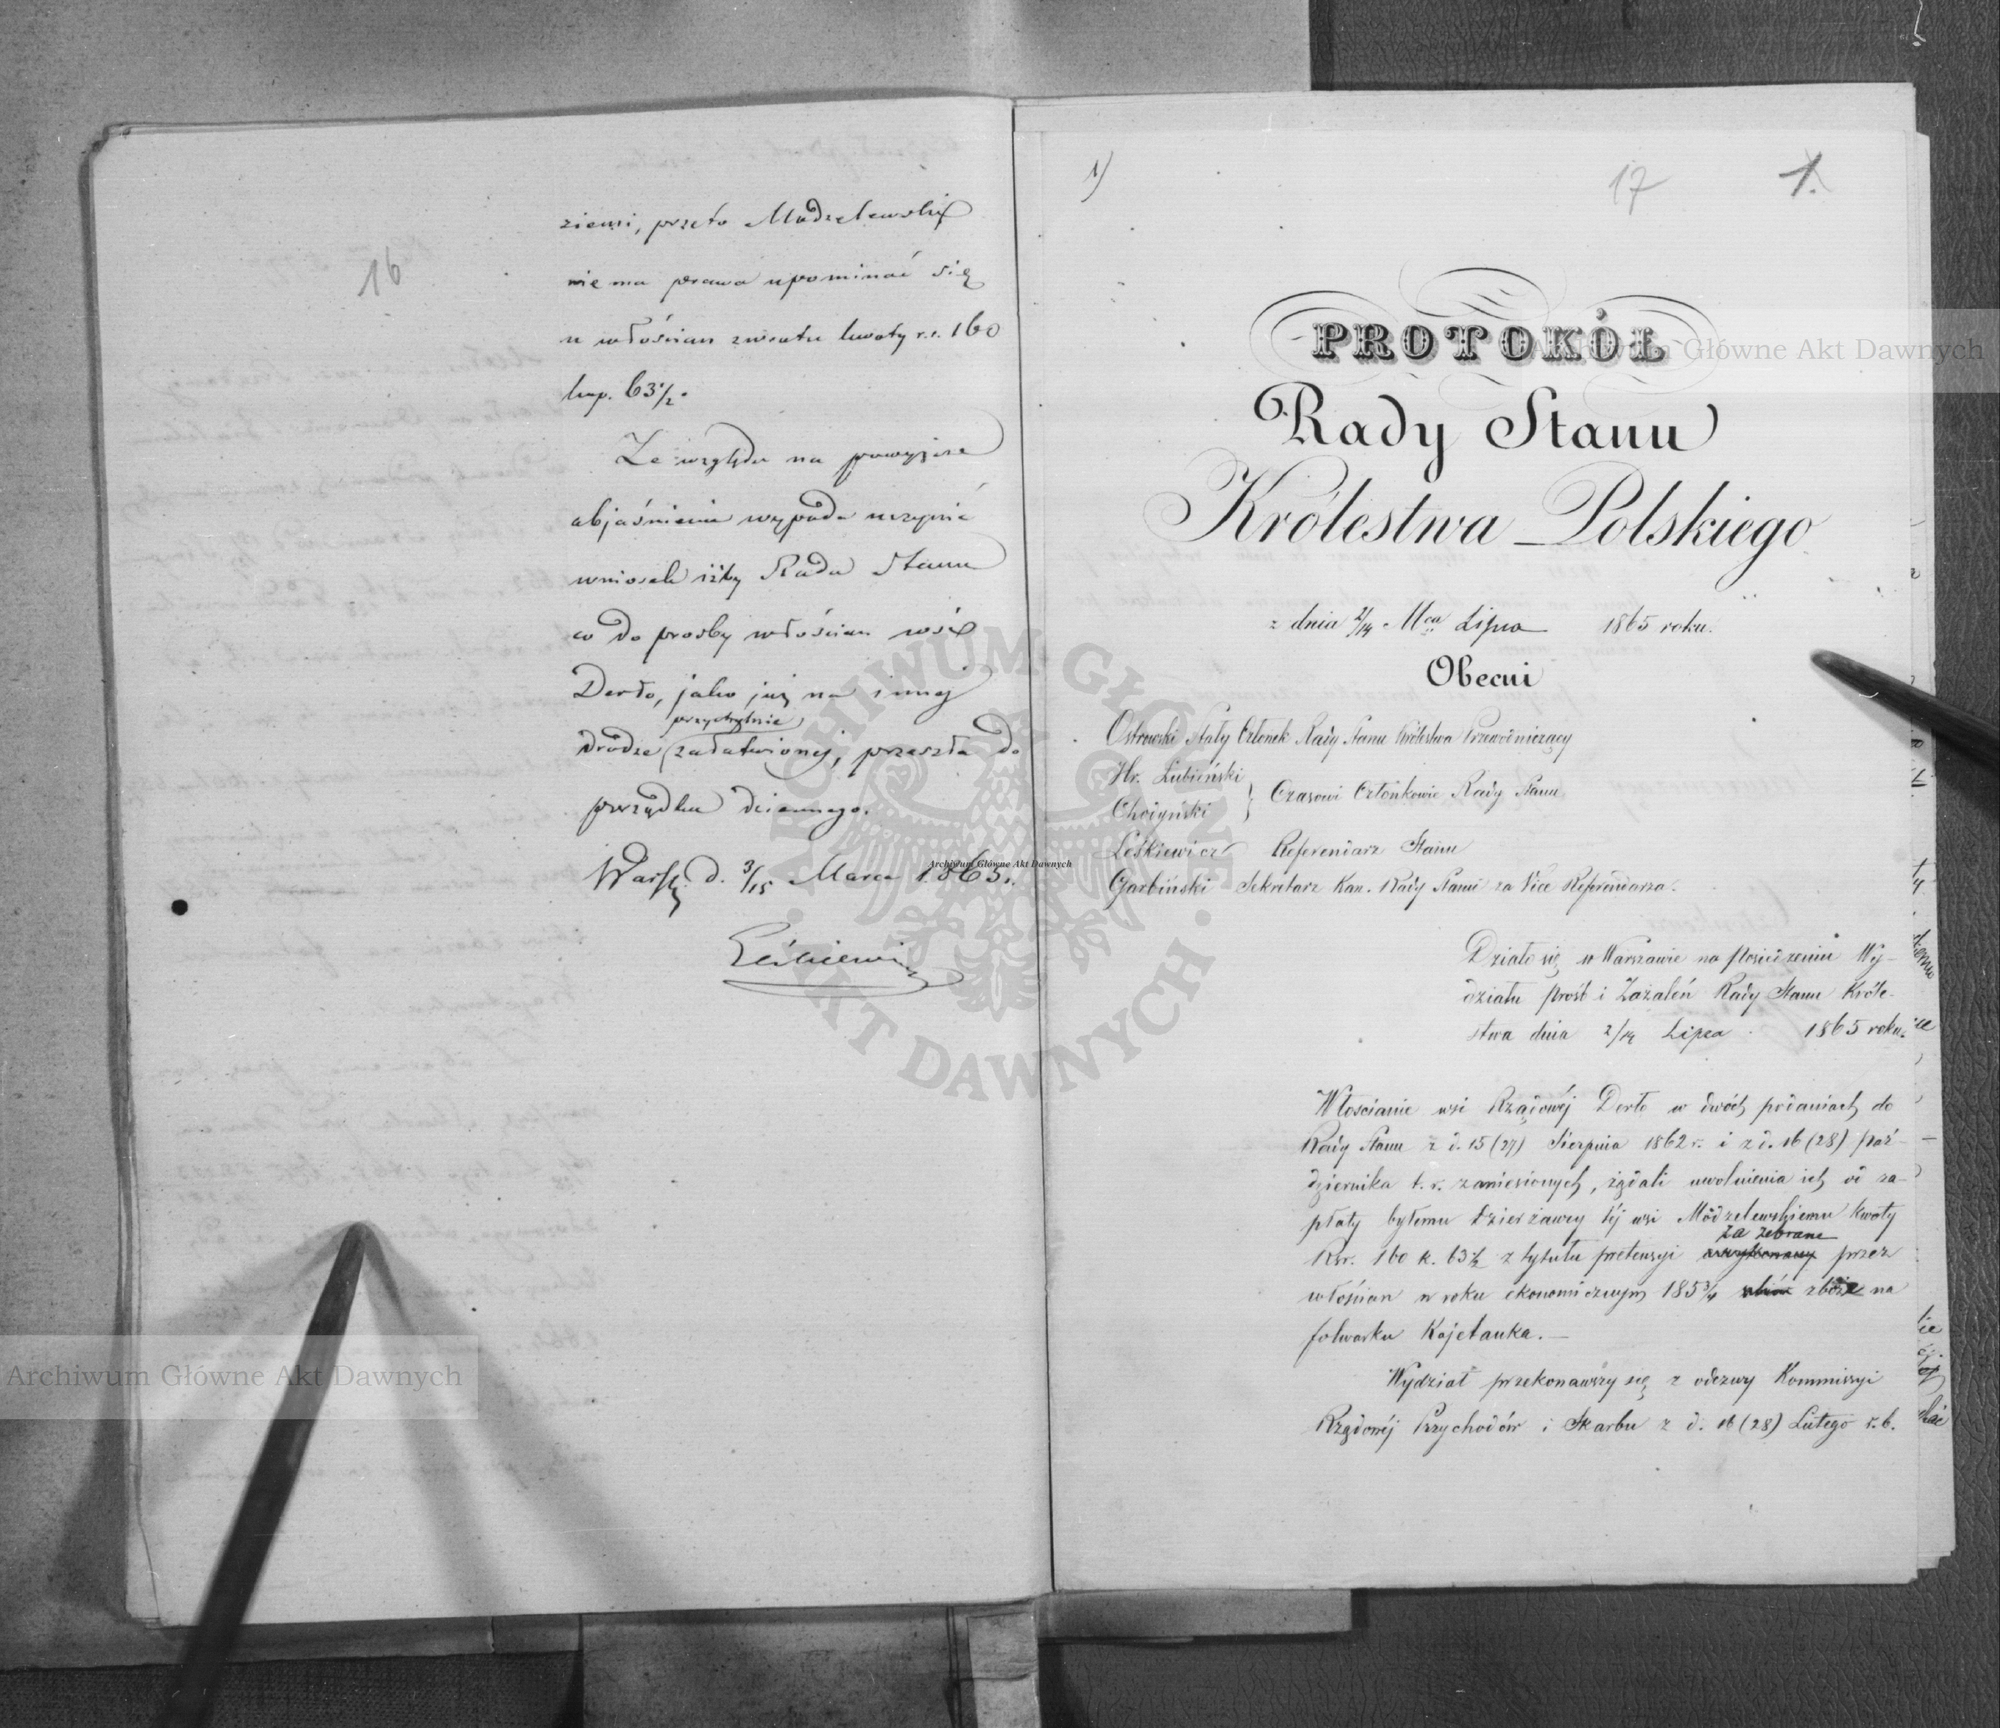 16
ziemi, przeto Modzelewski
nie ma prawa upominać się
u włościan zwrotu kwoty r.s. 160
kop. 63 1/2.
Ze względu na powyższe
objaśnienie wypada uczynić
wniosek iżby Rada Stanu
co do prośby włościan wsi
Derło, jako już na innej
przychylnie
drodze załatwionej, przeszła do
porządku dziennego.
Warsz. d. 3/15 Marca 1865 r.
Leśkiewicz
1)
17
1.
PROTOKÓŁ
Rady Stanu
Królestwa Polskiego
z dnia 2/14 Mca Lipca 1865 roku.
Obecni
Ostrowski Stały Członek Rady Stanu Królestwa Przewodniczący
Hr. Łubieński
Choiyński } Czasowi Członkowie Rady Stanu
Leśkiewicz Referendarz Stanu
Garbiński Sekretarz Kan. Rady Stanu za Vice Referendarza.
Działo się w Warszawie na posiedzeniu Wy-
działu Próśb i Zażaleń Rady Stanu Króle-
stwa dnia 2/14 Lipca 1865 roku.
Włościanie wsi Rządowéj Derło w dwóch podaniach do
Rady Stanu z d. 15 (27) Sierpnia 1862 r. i z d. 16 (28) Paź-
dziernika t. r. zaniesionych, żądali uwolnienia ich od za-
płaty byłemu dzierżawcy téj wsi Modzelewskiemu kwoty
za zebrane
Rsr. 160 k. 63 1/2 z tytułu pretensyi przez
włościan w roku ekonomicznym 1853/4 zboże na
folwarku Kajetanka. —
Wydział przekonawszy się z odezwy Kommissyi
Rządowéj Przychodów i Skarbu z d. 16 (28) Lutego r. b.
Archiwum Główne Akt Dawnych
Archiwum Główne Akt Dawnych
Archiwum Główne Akt Dawnych
ARCHIWUM GŁÓWNE AKT DAWNYCH